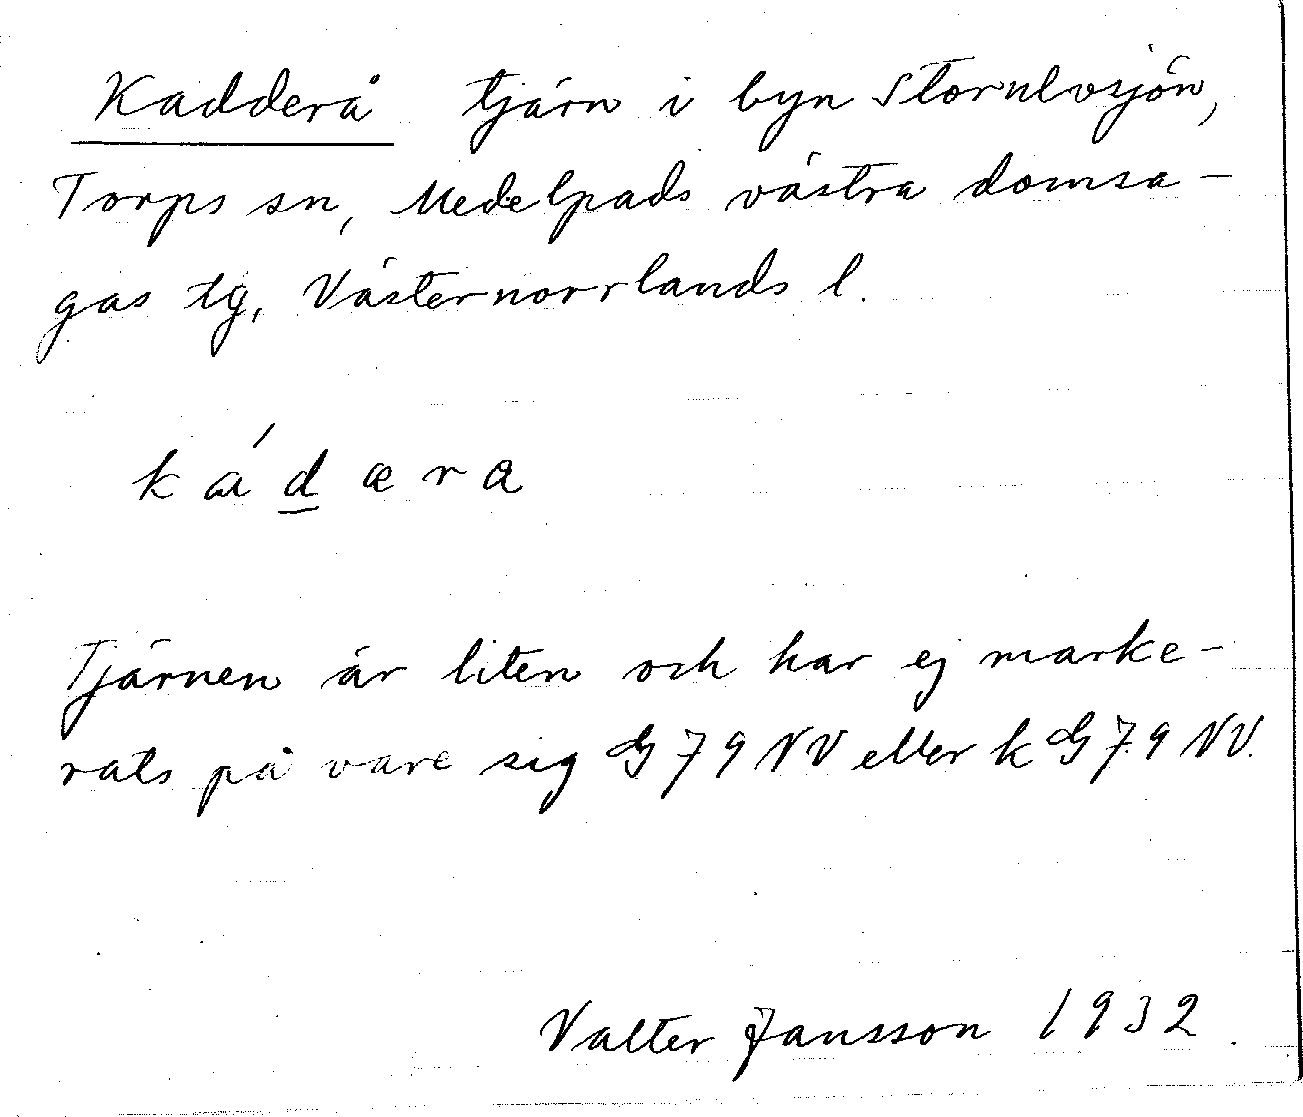 Kadderå tjärn i byn Storulvsjön,
Torps sn, Medelpads västra domsa-
gas tg, Västernorrlands l.
kád̲æra
Tjärnen är liten och har ej marke-
rats på vare sig G 79 NV eller k G 79 NV.
Valter Jansson 1932.